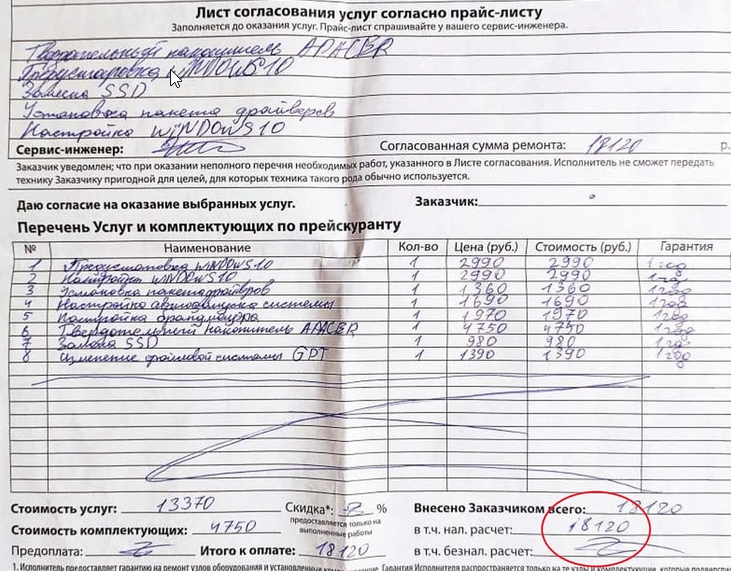 Лист согласования услуг согласно прайс-листу
Заполняется до оказания услуг. Прайс-лист спрашивайте у вашего сервис-инженера.
Твердотельный накопитель APACER
Предустановка WINDOWS10
Замена SSD
Установка пакета драйверов
Настройка WINDOWS10
Сервис-инженер: Согласованная сумма ремонта: 18120 р.
Заказчик уведомлен; что при оказании неполного перечня необходимых работ, указанного в Листе согласования. Исполнитель не сможет передать
технику Заказчику пригодной для целей, для которых техника такого рода обычно используется.
Даю согласие на оказание выбранных услуг. Заказчик:
Перечень Услуг и комплектующих по прейскуранту
№ Наименование Кол-во Цена (руб.) Стоимость (руб.) Гарантия
1 Предустановка WINDOWS10 1 2990 2990 1 год
2 Настройка WINDOWS10 1 2990 2990 1 год
3 Установка пакета драйверов 1 1360 1360 1 год
4 Настройка автозапуска системы 1 1690 1690 1 год
5 Настройка брандмауэра 1 1970 1970 1 год
6 Твердотельный накопитель APACER 1 4750 4750 1 год
7 Замена SSD 1 980 980 1 год
8 Изменение файловой системы GPT 1 1390 1390 1 год
Стоимость услуг: 13370 Скидка*: % Внесено Заказчиком всего: 18120
предоставляется только на
выполненные работы
Стоимость комплектующих: 4750 в т.ч. нал. расчет: 18120
Предоплата: Итого к оплате: 18120 в т.ч. безнал. расчет:
1. Исполнитель предоставляет гарантию на ремонт узлов оборудования и установленные Гарантия Исполнителя распространяется только на те узлы и комплектующие, которые